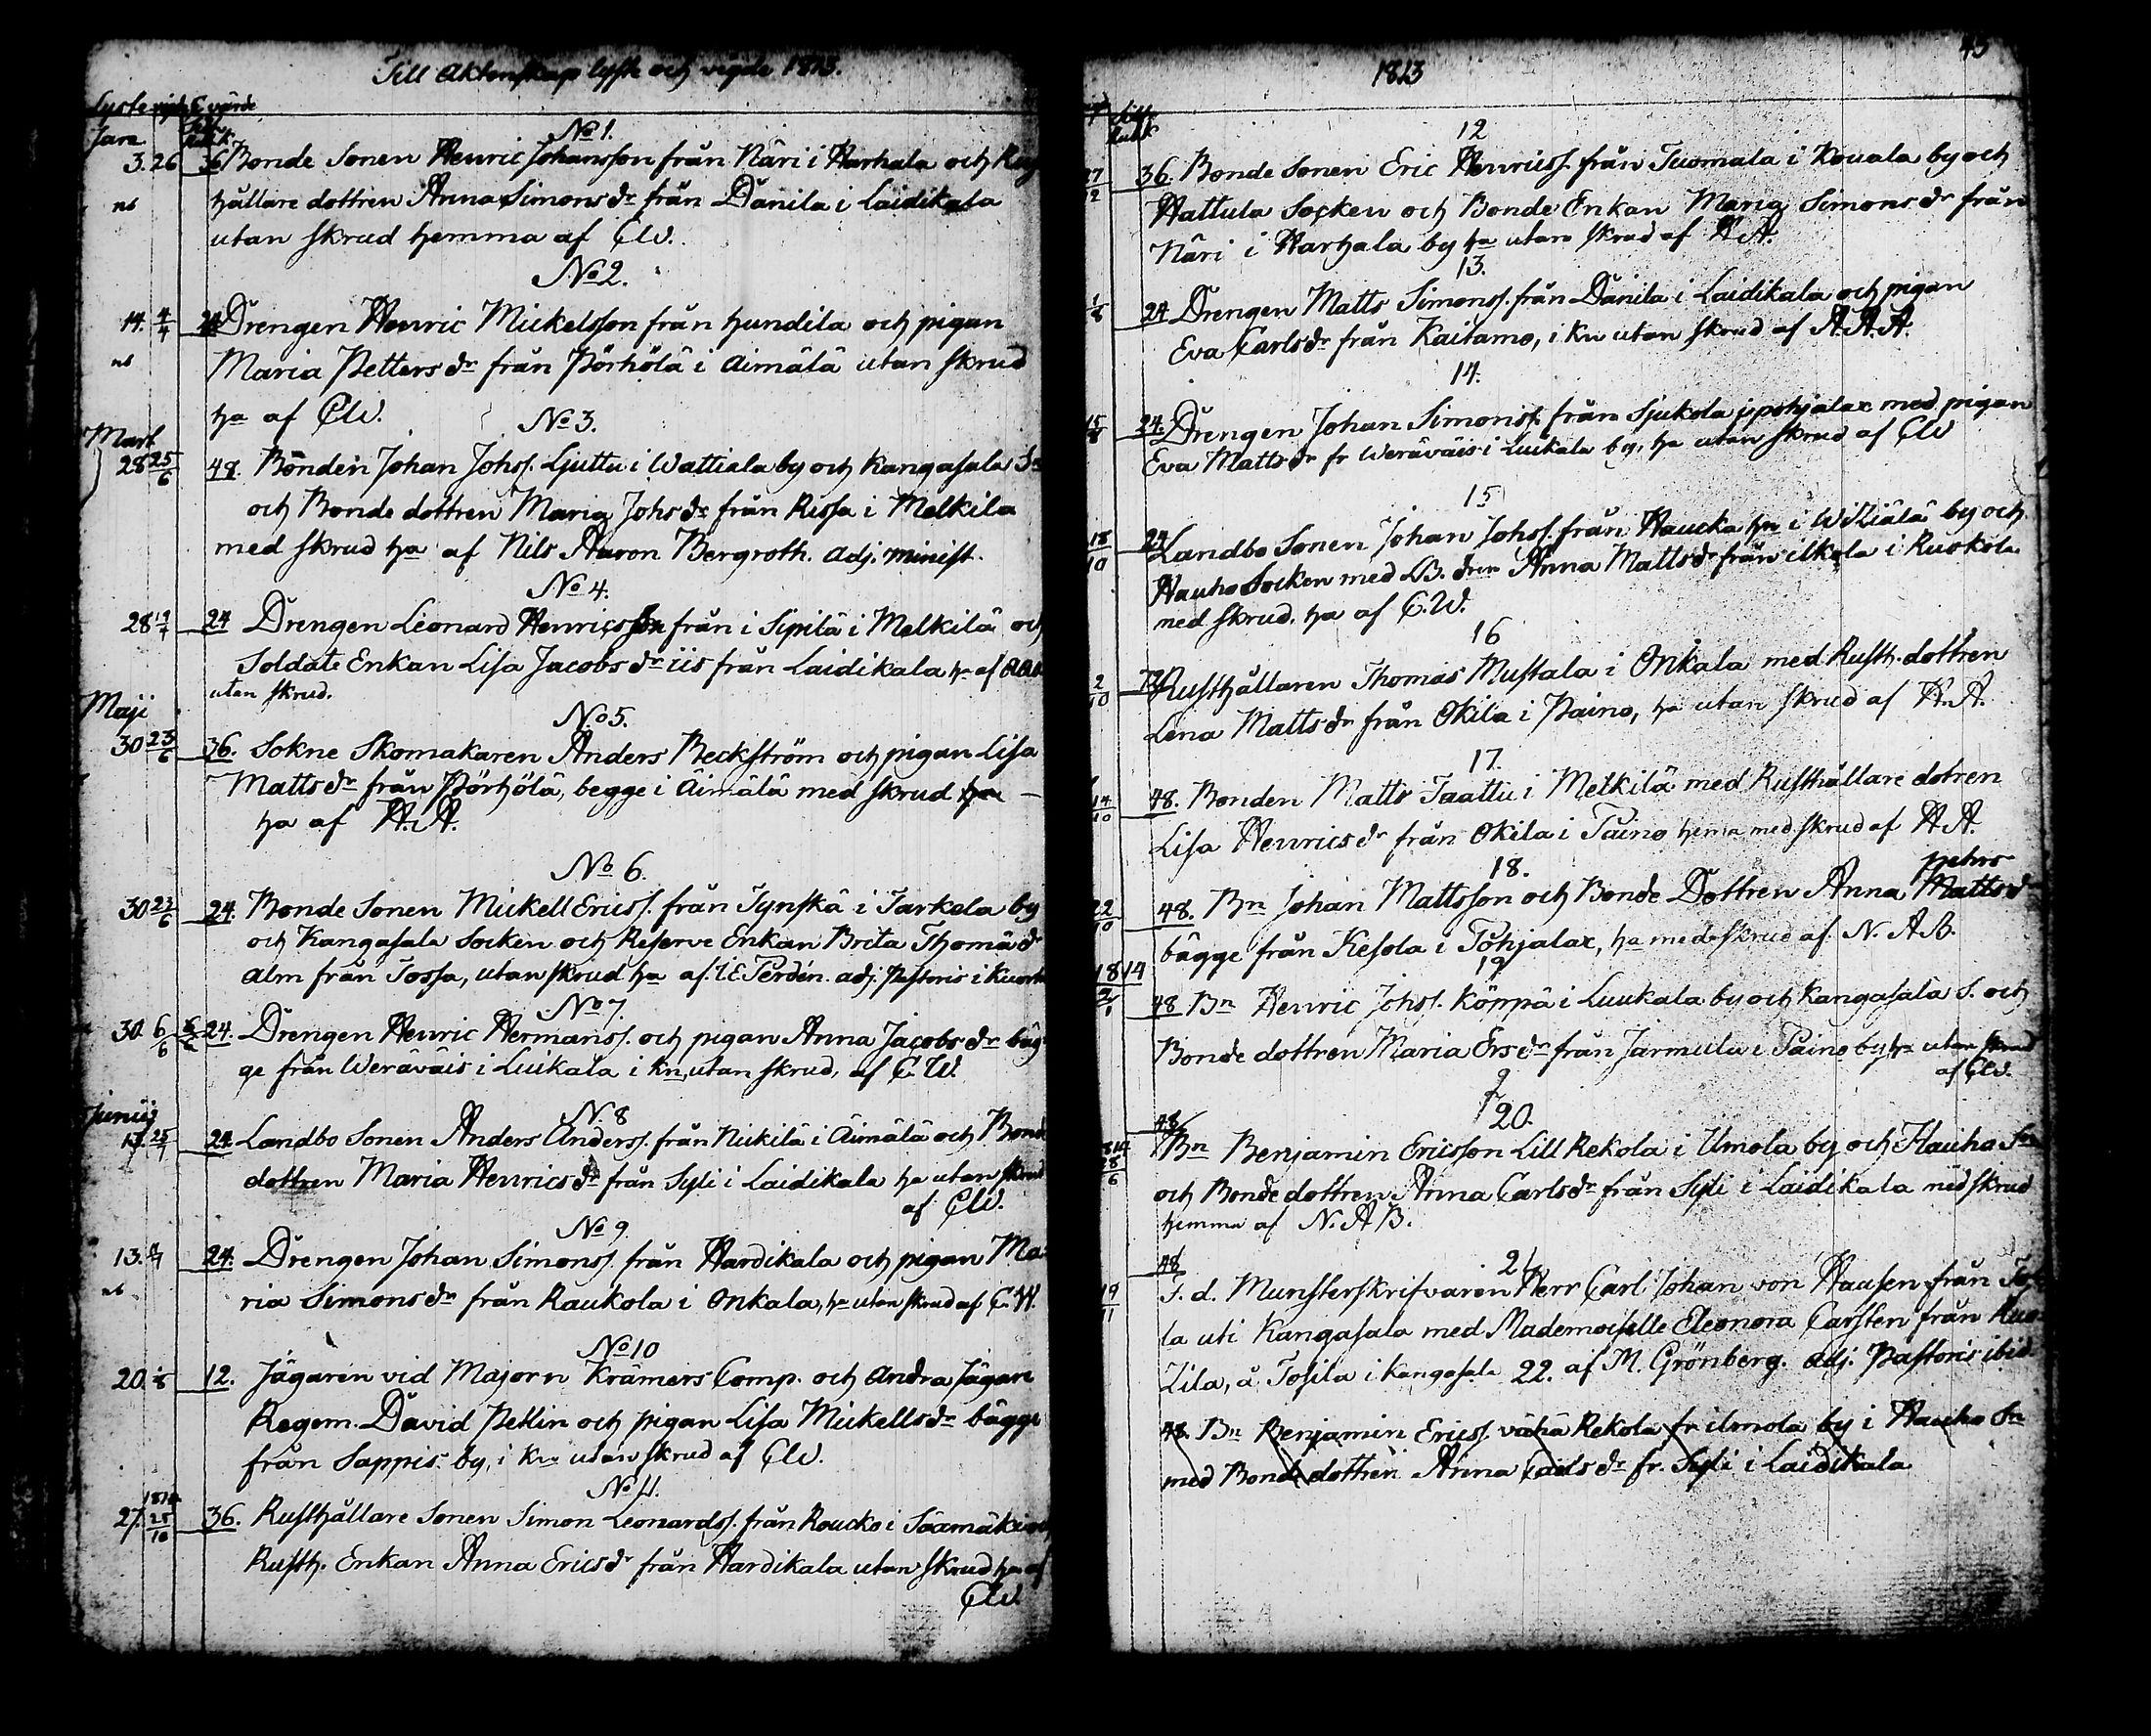 Till Äktenskap lyste och vigde 1813.
Lyste vigde E värde
Jan.
No 1.
3. 26 36 Bonde Sonen Henric Johansson från Näri i Harhala och
nb hållare dottren Anna Simonsdr från Danila i Laidikala
utan skrud hemma af CW.
No 2.
14. 4/4 24 Drengen Henric Mickelsson från hundila och pigan
nb Maria Pettersdr från Pörhölä i Aimälä utan skrud
ha af CW.
No 3.
Mart
28 25/6 48. Bonden Johan Johss. Ljuttu i Wattiala by och Kangasala Sn
och Bonde dottren Maria Johsdr från Rissa i Mälkila
med skrud ha af Nils Aaron Bergroth. Adj. Minist.
No 4.
28 24 Drengen Leonard Henricsson från i Sipilä i Melkilä och
Soldate Enkan Lisa Jacobsdr iis från Laidikala ha af
utan skrud.
Maji
No 5.
30 23/6 36. Sokne Skomakaren Anders Beckström och pigan Lisa
Mattsdr från Pörhölä, begge i Aimälä med skrud ha
ha af A.A.
No 6.
30 23/6 24. Bonde Sonen Mickell Ericss. från Tynskä i Tarkela by
och Kangasala Socken och Reserve Enkan Brita Thomædr
Alm från Jossa, utan skrud ha af. Perdén. adj. Pastoris i
No 7.
30. 6/6 24. Drengen Henric Hermanss. och pigan Anna Jacobsdr bäg
ge från Weräväis i Luikala i kn, utan skrud, af C.W.
Junii
N. 8
13. 25/7 24. Landbo Sonen Anders Anderss. från Nickilä i Aimälä och Bonde
dottren Maria Henricsdr från Syli i Laidikala ha utan skrud
af CW.
No 9.
13. 24. Drengen Johan Simonss. från Hardikala och pigan Ma-
nb ria Simonsdr från Raukola i Onkala, ha utan skrud af C.W.
No 10
20. 12. Jägaren vid Majorn Krämers Comp. och Andra Jägare
Regem. David Petlin och pigan Lisa Mickellsdr bägge
från Sappis by, i kn utan skrud af CW.
No 11.
27. 25/10 36. Rusthållare Sonen Simon Leonardss. från Roucko i Säxmäki och
Rusth. Enkan Anna Ericsdr från Hardikala utan skrud ha af
CW
1813
45
12
36. Bonde Sonen Eric Henricss. från Tuomala i Kouala by och
Hattula Socken och Bonde Enkan Maria Simonsdr från
Näri i Harhala by ha utan skrud af A.A.
13.
24 Drengen Matts Simonss. från Danila i Laidikala och pigan
Eva Carlsdr från Kaitamo, i kn utan skrud af A.A.A.
14.
15/8 24. Drengen Johan Simonss. från Sjukola i pohjalax med pigan
Eva Mattsdr fr Weräväis i Luikala by, ha utan skrud af CW
15
18/10 24 Landbo Sonen Johan Johss. från Haucka i by och
Hauho Socken med LB. dren Anna Mattsdr från ilkala i Ruokola
med skrud. ha af C.W.
16
2/10 72 Rusthållaren Thomas Mustala i Onkala med Rusth. dottren
Lena Mattsdr från Okila i Paino, ha utan skrud af A.A.
17.
14/10 48. Bonden Matts Taattu i Melkilä med Rusthållare dotren
Lisa Henricsdr från Okila i Paino hema med skrud af A.A.
18.
Pehrs
22/10 48. Bn Johan Mattsson och Bonde Dottren Anna Mattsdr
bägge från Kesola i Pohjalax, ha med skrud af N. A B.
1814
19
48 Bn Henric Johss. Köppä i Luukala by och Kangasala S. och
Bonde dottren Maria Ersdr från Jarmula i Paino by, ha utan skrud
af CW.
20.
48
Bn Benjamin Ericsson Lill Rekola i Umola by och Hauho Sn
28/6 och Bonde dottren Anna Carlsdr från Syli i Laidikala med skrud
hemma af N. A B.
48
21
F. d. Munsterskrifvaren Herr Carl Johan von Hausen från To-
la uti Kangasala med Mademoiselle Eleonora Carsten från
Zila, å Tosila i Kangasala 22. af M. Grönberg. Adj. Pastoris ibid.
48. Bn Benjamin Ericss. vähä Rekola fr ilmola by i Hauho Sn
med Bonde dottren Anna Carlsdr fr. Syli i Laidikala